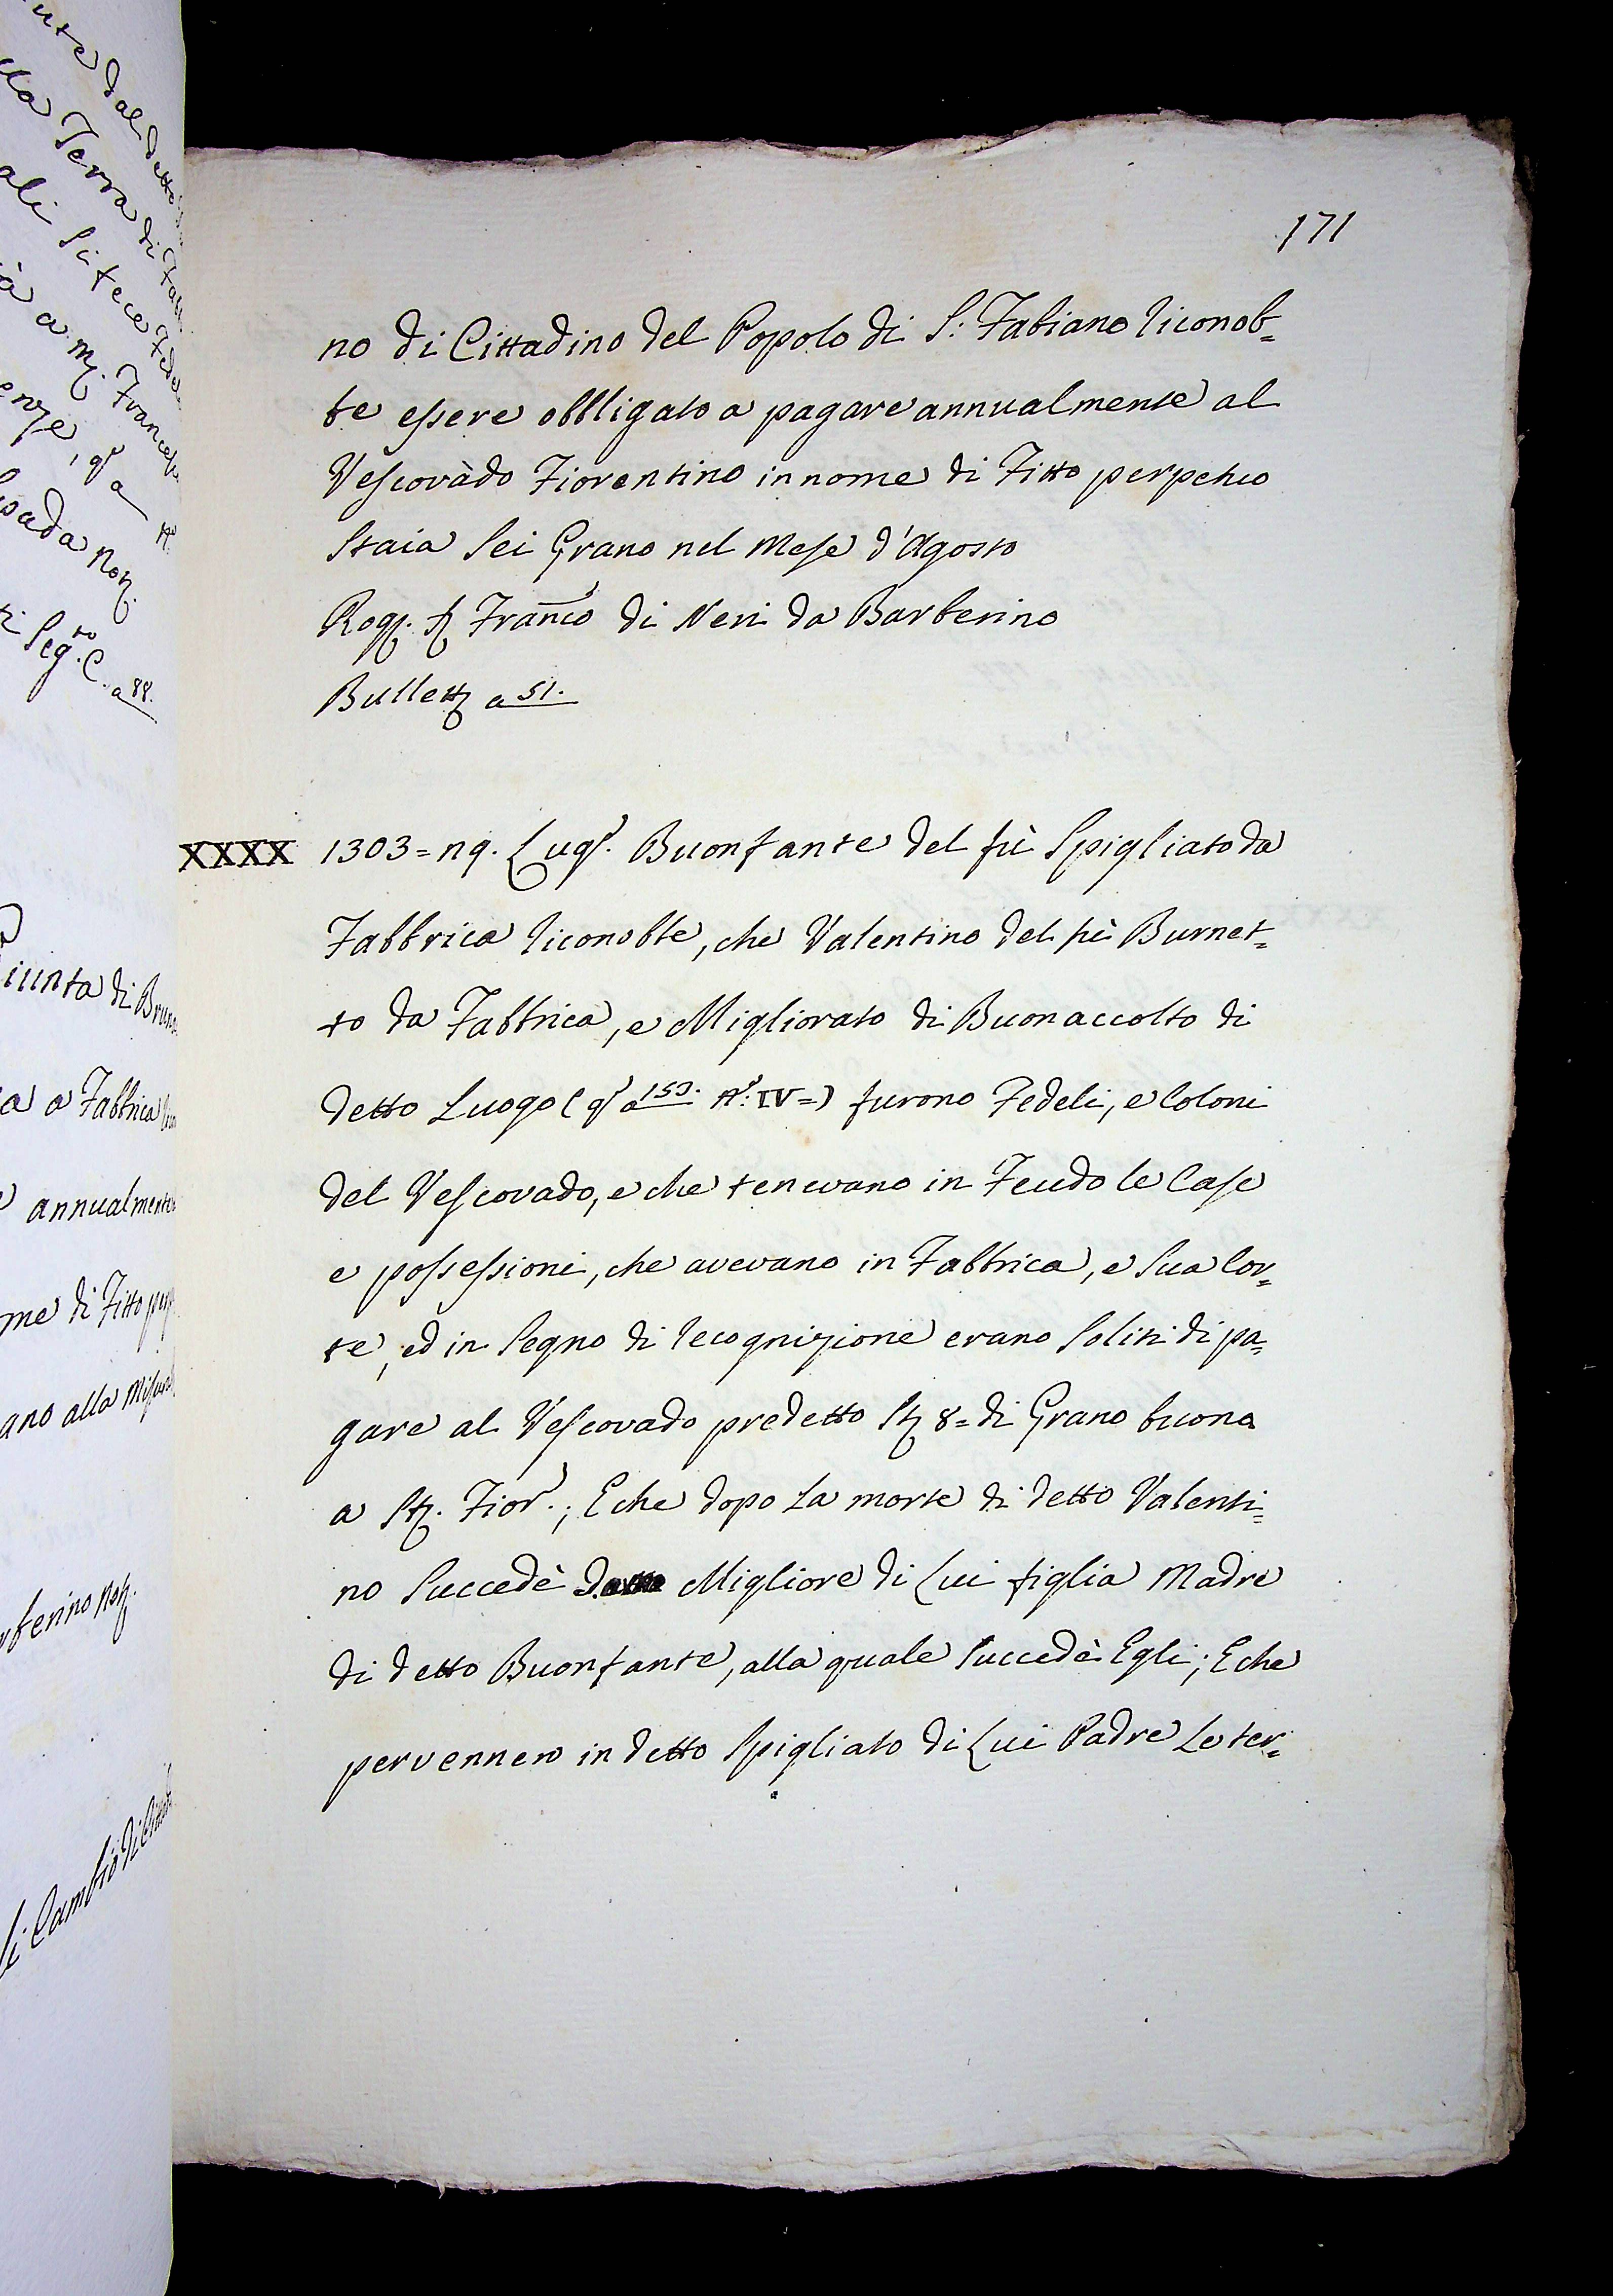 171
no di Cittadino del Popolo di S: Fabiano riconob=
be essere obbligato a pagare annualmente al
Vescovàdo Fiorentino in nome di Fitto perpetuo
Staia Sei Grano nel Mese d'Agosto
Rog. Franco di Neri da Barberino
Bullett a 51.
XXXX 1303= 19. Lug. Buonfante del fù Spigliato da
Fabbrica riconobbe, che Valentino del fù Burnet=
to da Fabbrica, e Migliorato di Buonaccolto di
detto Luogo ( qo a 159. No: IV=) furono Fedeli, e Coloni
del Vescovado, e che tenevano in Feudo le Case
e possessioni, che avevano in Fabbrica, e Sua Cor=
te, ed in Segno di recognizione erano Soliti di pa=
gare al Vescovado predetto St 8= di Grano buono
a St. Fior.; E che dopo La morte di detto Valenti=
no Succedè Migliore di Lui figlia Madre
di detto Buonfante, alla quale Succedè Egli; E che
pervennero in detto Spigliato di Lui Padre Le ter=
dal detto
la Terra di
ali Si fece
a 88.
iunta di
a a Fabbrica
annualmente
me di Fitto
ano alla
Cambio di